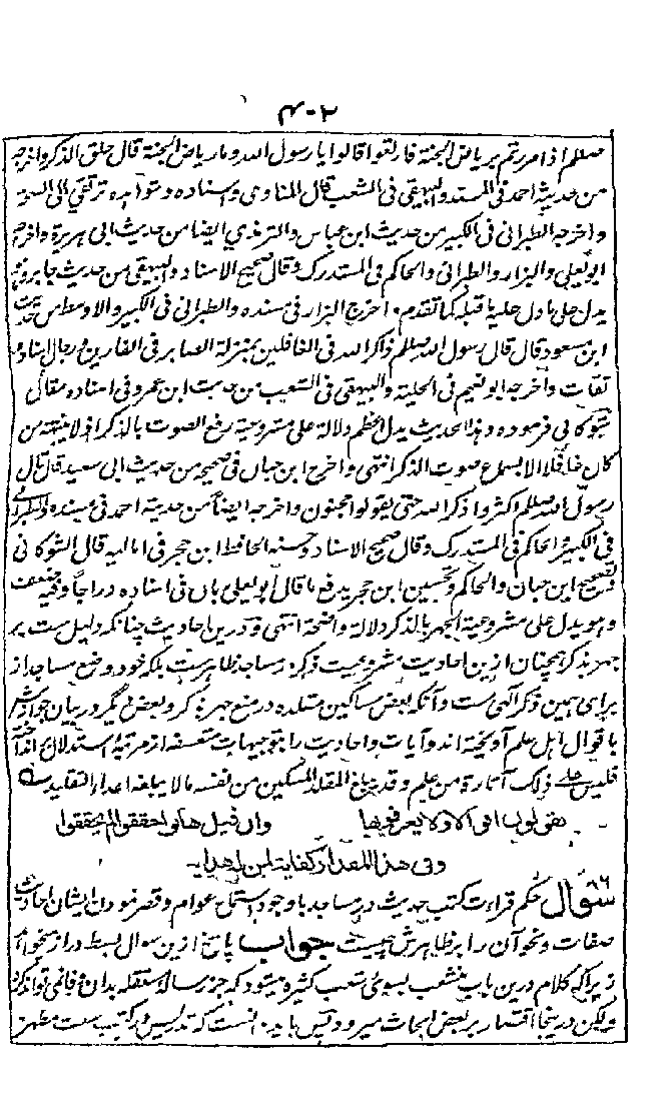 ۴۰۲
صللم اذا مررتم برياض الجنة فارتعوا قالوا يا رسول الله و ما رياض الجنة قال حلق الذكر واخرجه
من حديثه احمد فى المسند والبيهقى فى الشعب قال المناوى و اسناده و شواهده ترتقى الى الصحة
و اخرجه الطبرانى فى الكبير من حديث ابن عباس والترمذى ايضا من حديث ابى هريرة واخرجه
ابو يعلى والبزار والطبرانى والحاكم فى المستدرك وقال صحيح الاسناد والبيهقى من حديث جابر وهو
يدل على ما دل عليه ما قبله كما تقدم، اخرج البزار فى مسنده والطبرانى فى الكبير والاوسط من حديث
ابن مسعود قال قال رسول الله صللم ذاكر الله فى الغافلين بمنزلة الصابر فى الفارين ورجال اسناده
ثقات و اخرجه ابو نعيم فى الحلية والبيهقى فى الشعب من حديث ابن عمر و فى اسناده مقال
شوكانى فرموده وهذا الحديث يدل اعظم دلالة على مشروعية رفع الصوت بالذكر اذ لا ينتبه من
كان غافلا الا بسماع صوت الذكر انتهى واخرج ابن حبان فى صحيحه من حديث ابى سعيد قال قال
رسول الله صللم اكثروا ذكر الله حتى يقولوا مجنون واخرجه ايضا من حديثه احمد فى مسنده والطبرانى
فى الكبير والحاكم فى المستدرك وقال صحيح الاسناد وحسنه الحافظ ابن حجر فى اماليه قال الشوكانى
تصحيح ابن حبان والحاكم وتحسين ابن حجر يدفع ما قال ابو يعلى بان فى اسناده دراجا وفيه ضعف
وهو يدل على مشروعية الجهر بالذكر دلالة واضحة انتهى و درين احاديث چنانكه دليل ست بر
جهر بذكر همچنان ازين احاديث مشروعيت ذكر در مساجد ظاهرست بلكه خود وضع مساجد از
براى همين ذكر الهى ست وآنكه بعض مساكين مقلده در منع جهر بذكر و بعض ديگر در بيان جوازش
با قوال اهل علم آويخته اند و آيات و احاديث را بتوجيهات متعسفه از مرتبه استدلال انداخته
فليس على ذلك اثارة من علم و قد يبلغ المقلد المسكين من نفسه ما لا يبلغه اعداء التقليد
يقولون اقوالا ولا يعرفونها وان قيل هاتوا حققوا لم يحققوا
وفى هذا المقدار كفاية لمن له هداية
سؤال ۸۶ حكم قراءت كتب حديث در مساجد با وجود استماع عوام و قصر نمودن ايشان احاديث
صفات و نحو آن را بر ظاهرش چيست جواب پاسخ ازين سوال بسط دراز ميخواهد
زيرا كه كلام درين باب منشعب بسوى شعب كثيره ميشود كه جز رساله مستقله بدان وفا نمى تواند كرد
وليكن درينجا اقتصار بر بعض ابحاث ميرود پس بايد دانست كه تدريس در كتب سنت مطهره